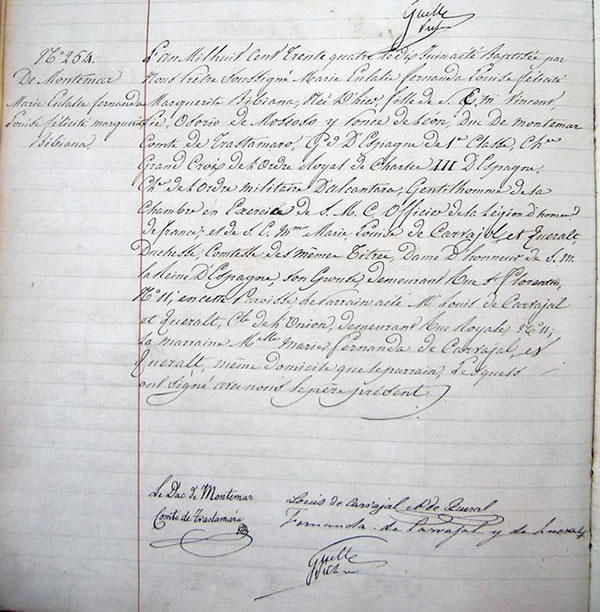 Guelle
Vic
N.º 254.
De Montemar
Marie Eulalie fernanda
Louise félicité marguerite
Bibiana
L'an Milhuit Cent Trente quatre le dix Juin a été Baptisée par
Nous Prêtre Soussigné Marie Eulalie fernanda Louise félicité
Marguerite Bibiana, Née D'hier, fille de S. E. Mr Vincent
Pie, Osorio de Moscoso y Ponce de Leon, Duc De Montemar
Comte de Trastamare, Gd D'Espagne de 1re Classe, Cher
Grand Croix de l'Ordre Royal de Charles III D'Espagne,
Cher de l'Ordre militaire D'alcantara, Gentilhomme de la
Chambre en Exercice de S. M. C. Officier de la Légion d'honnr
de france; et de S. E. Mme Marie Louise de Carvajal et Queralt,
Duchesse, Comtesse des même Titres, Dame d'honneur de S. M.
la Reine D'Espagne, son Epouse, demeurant Rue St Florentin,
N.º 11; en cette Paroisse Le Parrain a été Mr Louis de Carvajal
et Queralt, Cte de l'Union, demeurant Rue Royale N.º 11;
La marraine Melle Marie Fernanda de Carvajal, et
Queralt, même domicile que le parrain, Lesquels
ont signé avec nous le père présent
Le Duc de Montemar
Comte de Trastamare
Louis de Carvajal
Fernanda de Carvajal y de
Guelle
Vic